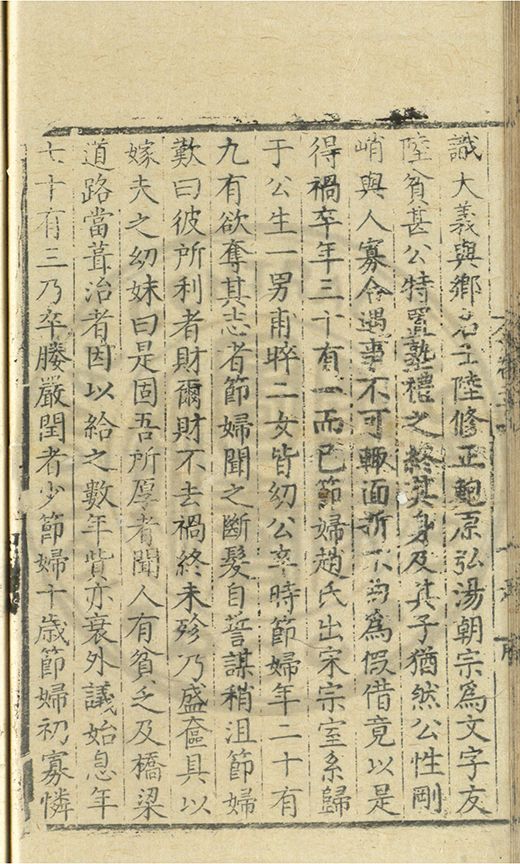 識大義與鄉名士陸修正鮑原弘湯朝宗為文字友
陸貧甚公特置塾禮之終其身及其子猶然公性剛
峭與人寡合遇事不可輒面折不肯為假借竟以是
得禍卒年三十有一而已節婦趙氏出宋宗室系歸
于公生一男甫晬二女皆幼公卒時節婦年二十有
九有欲奪其志者節婦聞之斷髮自誓謀稍沮節婦
歎曰彼所利者財爾財不去禍終未殄乃盛奩具以
嫁夫之幼妹曰是固吾所厚者聞人有貧乏及橋梁
道路當葺治者因以給之數年貲亦衰外議始息年
七十有三乃卒媵嚴閏者少節婦十歲節婦初寡憐